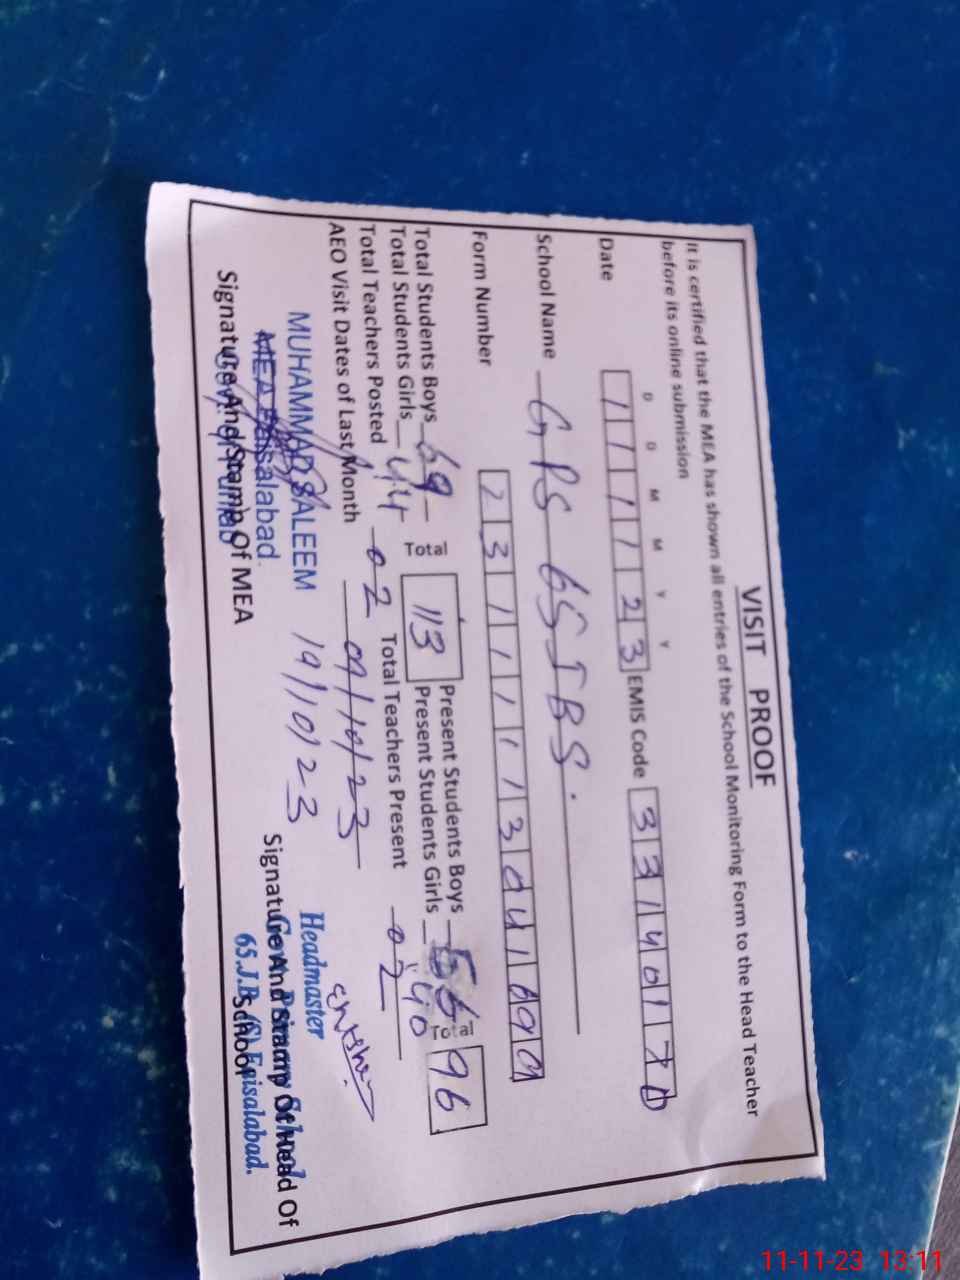 VISIT PROOF
It is certified that the MEA has shown all entries of the School Monitoring Form to the Head Teacher
before its online submission
D D M M Y Y
Date 111123 EMIS Code 33140170
School Name GPS 65 JBS.
Form Number
Total Students Boys 69 Total 113 Present Students Boys 56 Total 96
Total Students Girls 44 Present Students Girls 40
Total Teachers Posted 02 Total Teachers Present 02
AEO Visit Dates of Last Month 09/10/23
19/10/23
MUHAMMAD SALEEM
MEA Faisalabad.
Signature And Stamp Of MEA
Headmaster
Signature And Stamp Of Head Of
School
65.J.B (S) Faisalabad.
11-11-23 13:11